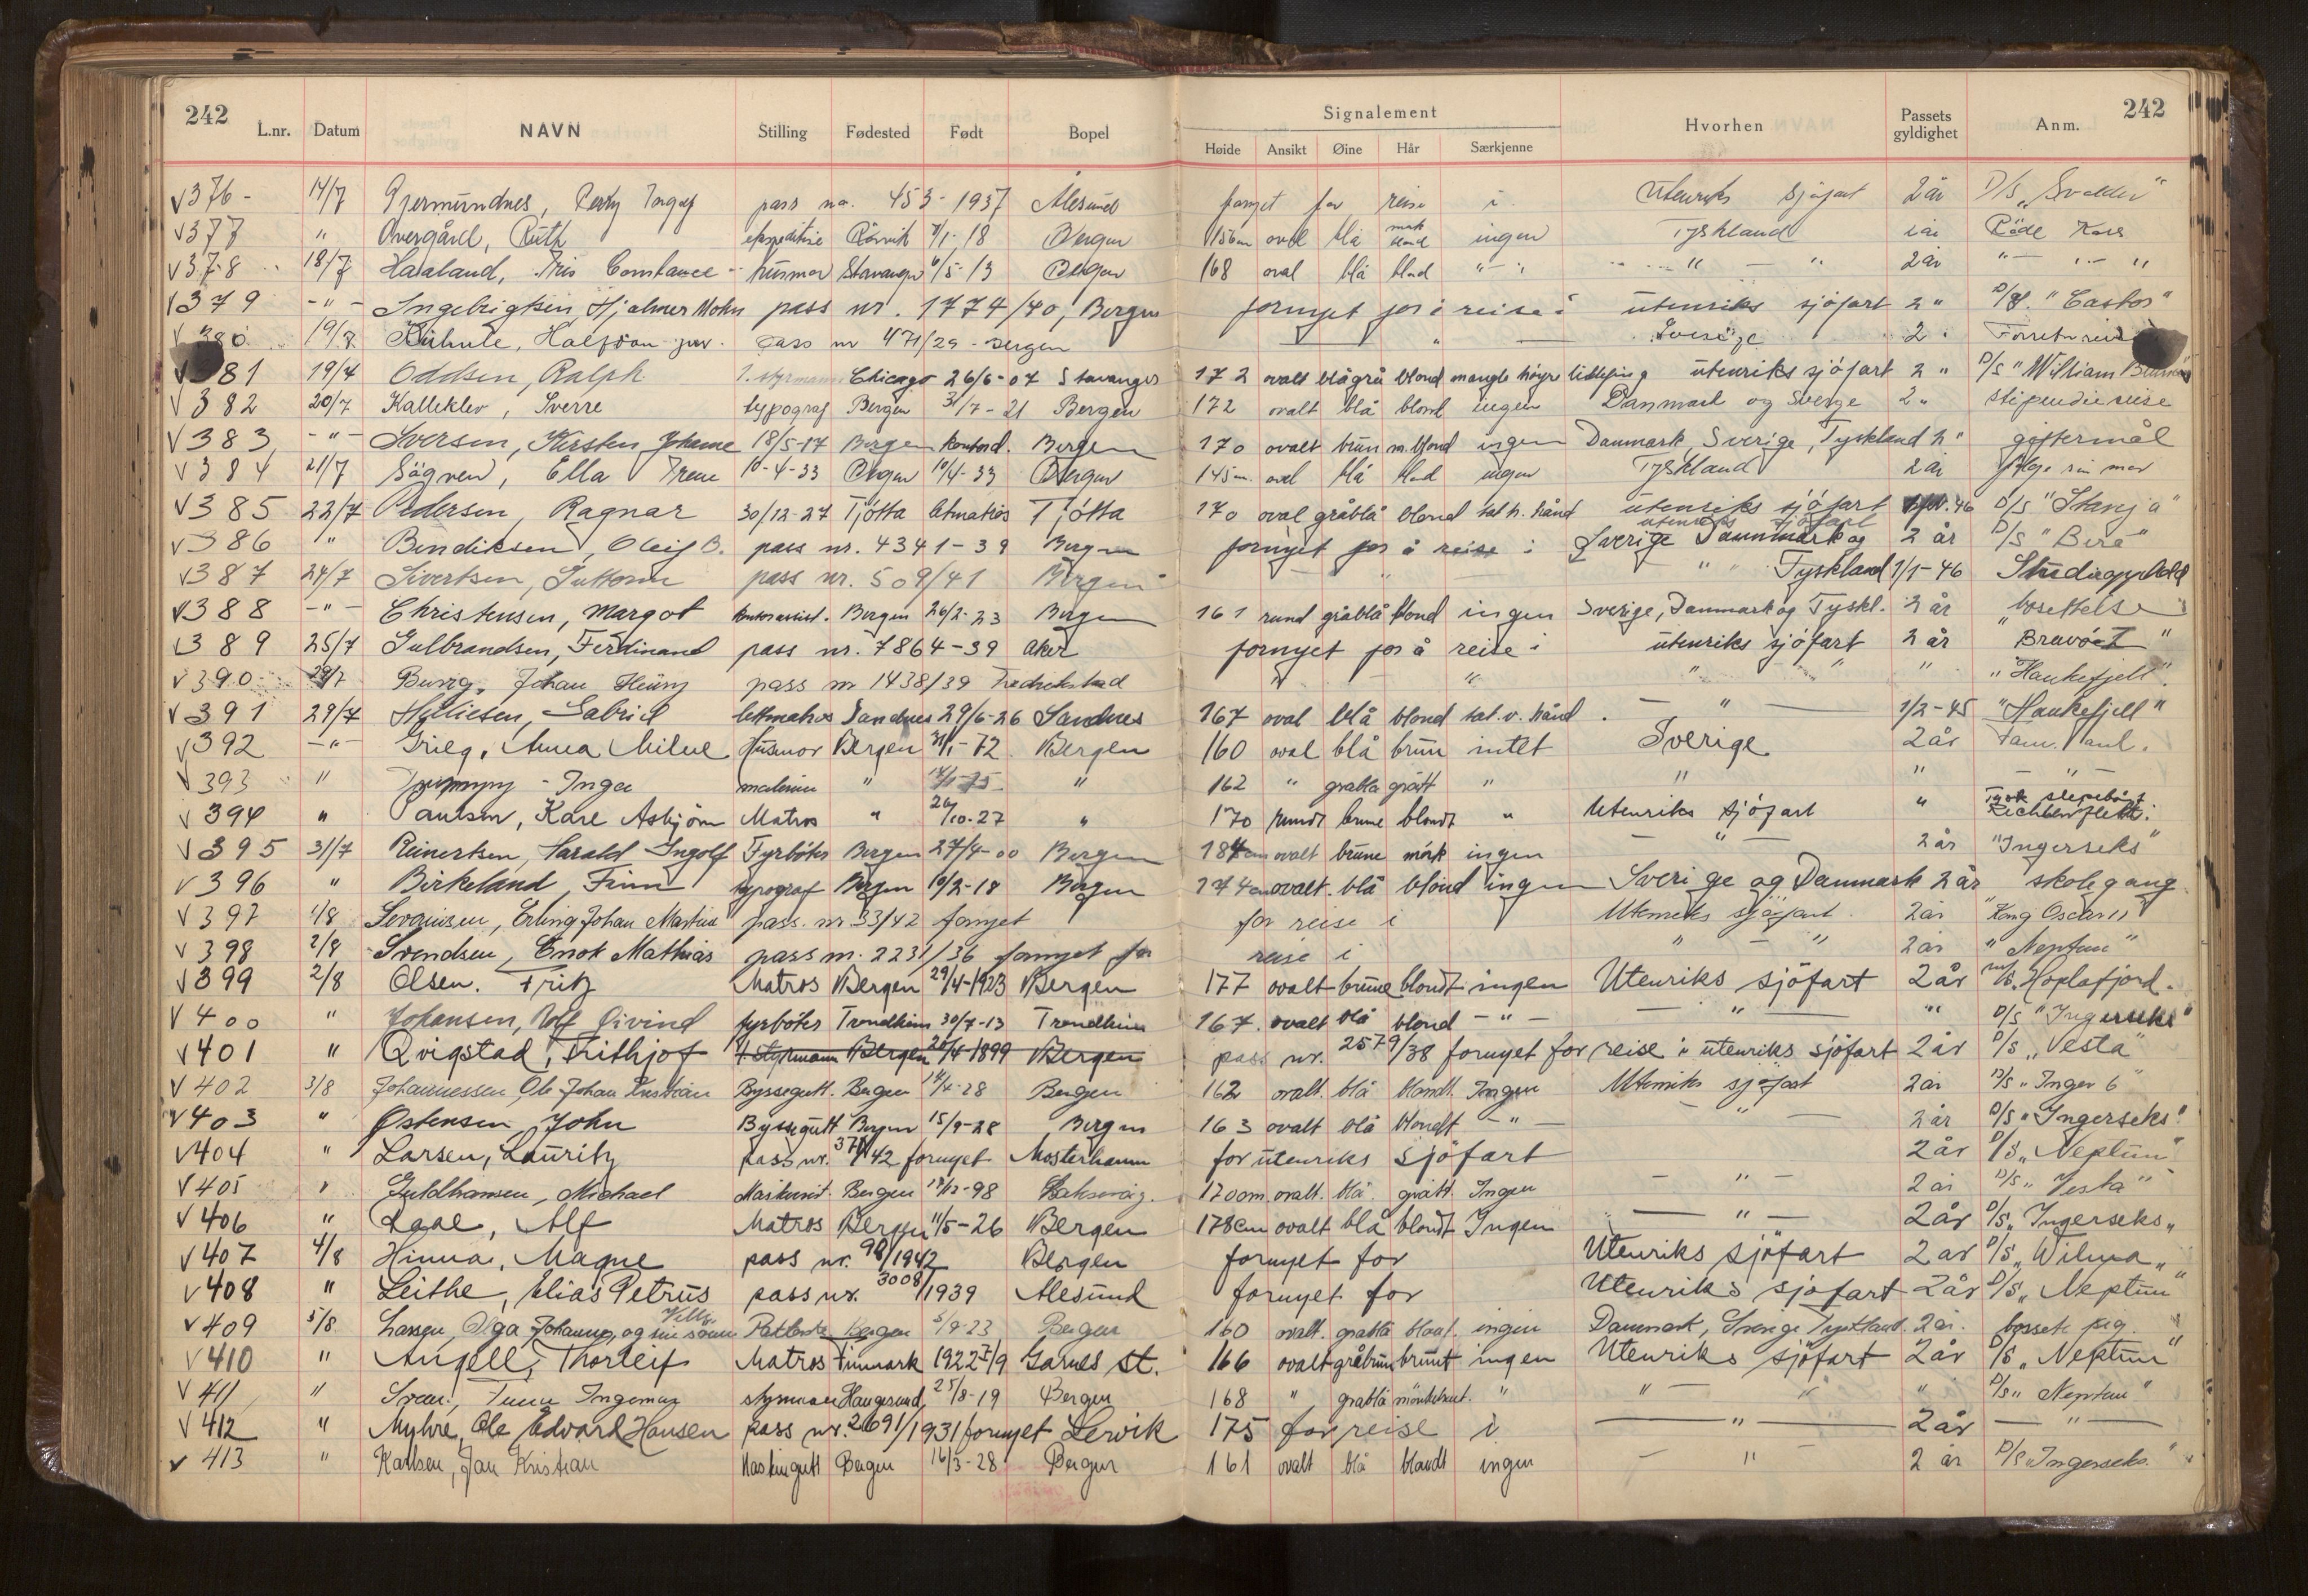 242 Signalement 242
L.nr. Datum NAVN Stilling Fødested Født Bopel Høide Ansikt Øine Hår Særkjenne Hvorhen Passets gyldighet Anm.
V 376 - 14/7 Gjermundnes, pass nr. 453 - 1937 Ålesund fornyet for reise i Utenriks sjøfart 2 år D/S
V 377 " Overgård, Ruth Rørvik /1-18 Bergen 156 cm oval blå mørk blond ingen Tyskland 2 år Røde Kors
V 378 18/7 Haaland, Iris Constance husmor Stavanger 6/5-13 Bergen 168 oval blå blond " - " " - " 2 år " - " - "
V 379 - " - Ingebrigtsen, Hjalmer Mohn pass nr. 1774/40, Bergen fornyet for å reise i utenriks sjöfart 2 " D/S. "Castor"
V 380 19/7 Halfdan jun. pass nr 471/29 - Bergen " Sverige 2 "
V 381 19/7 Oddsen, Ralph 1. styrmann Chicago 26/6-07 Stavanger 172 ovalt blågrå blond mangle höyre lillefing utenriks sjöfart 2 " D/S "William
V 382 20/7 Kalleklev, Sverre typograf Bergen 31/7-21 Bergen 172 ovalt blå blond ingen Danmark og Sverge 2 " stipendiereise
V 383 - " - Iversen, Kirsten Johanne 18/5-17 Bergen kontord. Bergen 170 ovalt brun m.blond ingen Danmark, Sverige, Tyskland 2 " giftermål
V 384 21/7 Sögnen, Ella Irene 10-4-33 Bergen 10/4-33 Bergen 145 cm. oval blå blond ingen Tyskland 2 år følge sin mor
V 385 22/7 Pedersen, Ragnar 30/12-27 Tjötta letmatros Tjötta 170 oval gråblå blond tat h. hånd utenriks sjöfart .46 D/S "Stanja"
V 386 " Bendiksen, Oleif B. pass nr. 4341-39 Bergen fornyet for å reise i utenriks sjöfart Sverige Danmark og 2 år D/S "Bera"
V 387 24/7 Sivertsen, Guttorm pass nr. 509/41 Bergen " " " Tyskland 1/1-46 Studieopphold
V 388 - " - Christensen, Margot kontorassist. Bergen 26/2-23 Bergen 161 rund gråblå blond ingen Sverige, Danmark og Tyskl. 2 år bosettelse
V 389 25/7 Gulbrandsen, Ferdinand pass nr. 7864-39 Aker fornyet for å reise i utenriks sjöfart 2 år "Bravo I"
V 390 - 29/7 Johan Henry pass nr 1438/39 Fredrikstad " " " " " "Haukefjell".
V 391 29/7 Gabriel lettmatros Sandnes 29/6-26 Sandnes 167 oval blå blond tat. v. hånd. - " - 1/2-45 "Haukefjell"
V 392 - " - Grieg, Anna Milne Husmor Bergen 31/1-72 Bergen 160 oval blå brun intet Sverige 2 år Fam. anl.
V 393 " - Inga malerinne " " 162 " gråblå grått " " " - " -
V 394 " Paulsen, Kåre Asbjørn Matros " 26/10-27 " 170 rundt brune blondt " Utenriks sjøfart " Tysk slepebåt
V 395 31/7 Reinertsen, Harald Ingolf Fyrböter Bergen 27/4-00 Bergen 184 cm ovalt brune mörk ingen - " - 2 år "Ingerseks"
V 396 " Birkeland, Finn typograf Bergen 10/2-18 Bergen 174 cm ovalt. blå blond ingen Sverige og Danmark 2 år skolegang
V 397 1/8 Erling Johan Martin pass. nr. 33/42 fornyet for reise i Utenriks sjøfart 2 år "Kong Oscar II
V 398 2/8 Svendsen, Enok Mathias pass nr. 2231/36 fornyet for reise i " - " 2 år "Neptun"
V 399 2/8 Olsen. Fritz Matros Bergen 29/4-1923 Bergen 177 ovalt brune blondt ingen Utenriks sjöfart 2 år m/s. Hoplafjord.
V 400 " Johansen, Ulf Øivind fyrböter Trondheim 30/7-13 Trondheim 167. ovalt blå blond - " - - " - " D/S "Ingerseks"
V 401 " Qvigstad, Frithjof 1. styrmann Bergen 26/4-1899 Bergen pass nr. 2579/38 fornyet for reise i utenriks sjöfart 2 år D/S "Vesta"
V 402 3/8 Johannessen, Ole Johan Kristian Byssegutt. Bergen 14/4-28 Bergen 162 ovalt. blå blondt. Ingen Utenriks sjøfart 2 år D/S "Inger 6"
V 403 " Østensen, John Byssegutt Bergen 15/9-28 Bergen 163 ovalt blå blondt - " - - " - 2 år D/S "Ingerseks"
V 404 " Larsen, Lauritz pass nr. /42 fornyet Mosterhamn for utenriks sjöfart 2 år D/S "Neptun"
V 405 " Guldhansen, Michael Maskinist. Bergen 17/12-98 170 cm. ovalt. blå grått. Ingen - " - 2 år D/S "Vesta"
V 406 " Alf Matros Bergen 11/5-26 Bergen 178 cm ovalt blå blondt Ingen - " - 2 år D/S "Ingerseks"
V 407 4/8 Hinna, Magne pass nr. 98/1942 Bergen fornyet for Utenriks sjöfart 2 år D/S "Wilma"
V 408 " Leithe, Elias Petrus pass nr. 3008/1939 Ålesund fornyet for Utenriks sjöfart 2 år D/S "Neptun"
V 409 5/8 Olga Johanne, og sin sønn Bergen 5/9-23 Bergen 160 ovalt. gråblå blont. ingen Danmark, Sverige Tyskland. 2 år. bosette seg
V 410 " Angell, Thorleif Matros Finmark 1922 7/9 Garnes st. 166 ovalt gråbrun brunt ingen Utenriks sjöfart 2 år D/S "Neptun"
V 411 " Ingemar styrmann Haugesund 25/8-19 Bergen 168 " gråblå mörkebrunt. " " - " " D/S "Neptun"
V 412 " Myhre, Ole Edvard Hansen pass nr. 2691/1931 fornyet Lervik 175 for reise i - " - 2 år - " -
V 413 " Karlsen, Jan Kristian Maskingutt Bergen 16/3-28 Bergen 161 ovalt blå blondt ingen - " - 2 år D/S "Ingerseks"